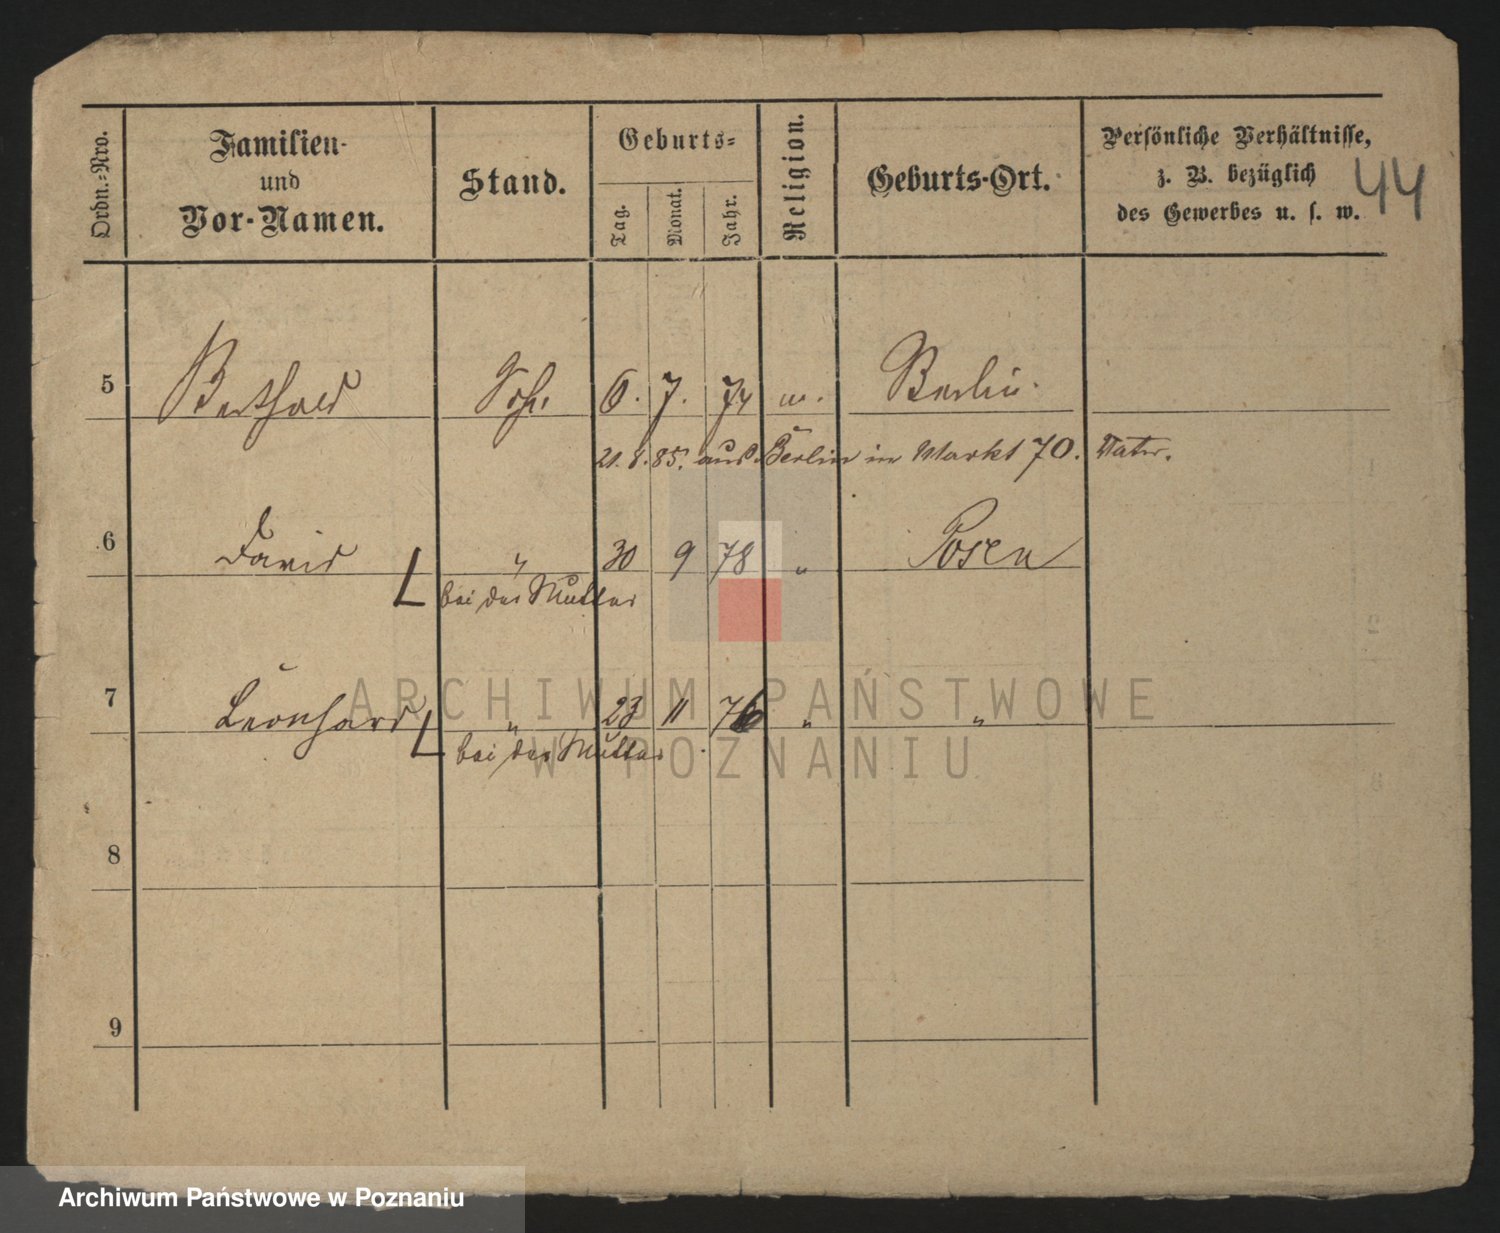 Ordn.-Nro.
Familien-
und
Vor-Namen.
Stand.
Geburts-
Tag.
Monat.
Jahr.
Religion.
Geburts-Ort.
Persönliche Verhältnisse,
z. B. bezüglich
des Gewerbes u. s. w.
44
5 Berthold Sohn 6. 7. 74 m. Berlin.
21. 8. 85. aus Berlin in Markt 70. Vater.
6 David " 30 9 78 " Posen
bei der Mutter
7 Leonhard " 23 11 76 " "
bei der Mutter
8
9
ARCHIWUM PAŃSTWOWE
W POZNANIU
Archiwum Państwowe w Poznaniu